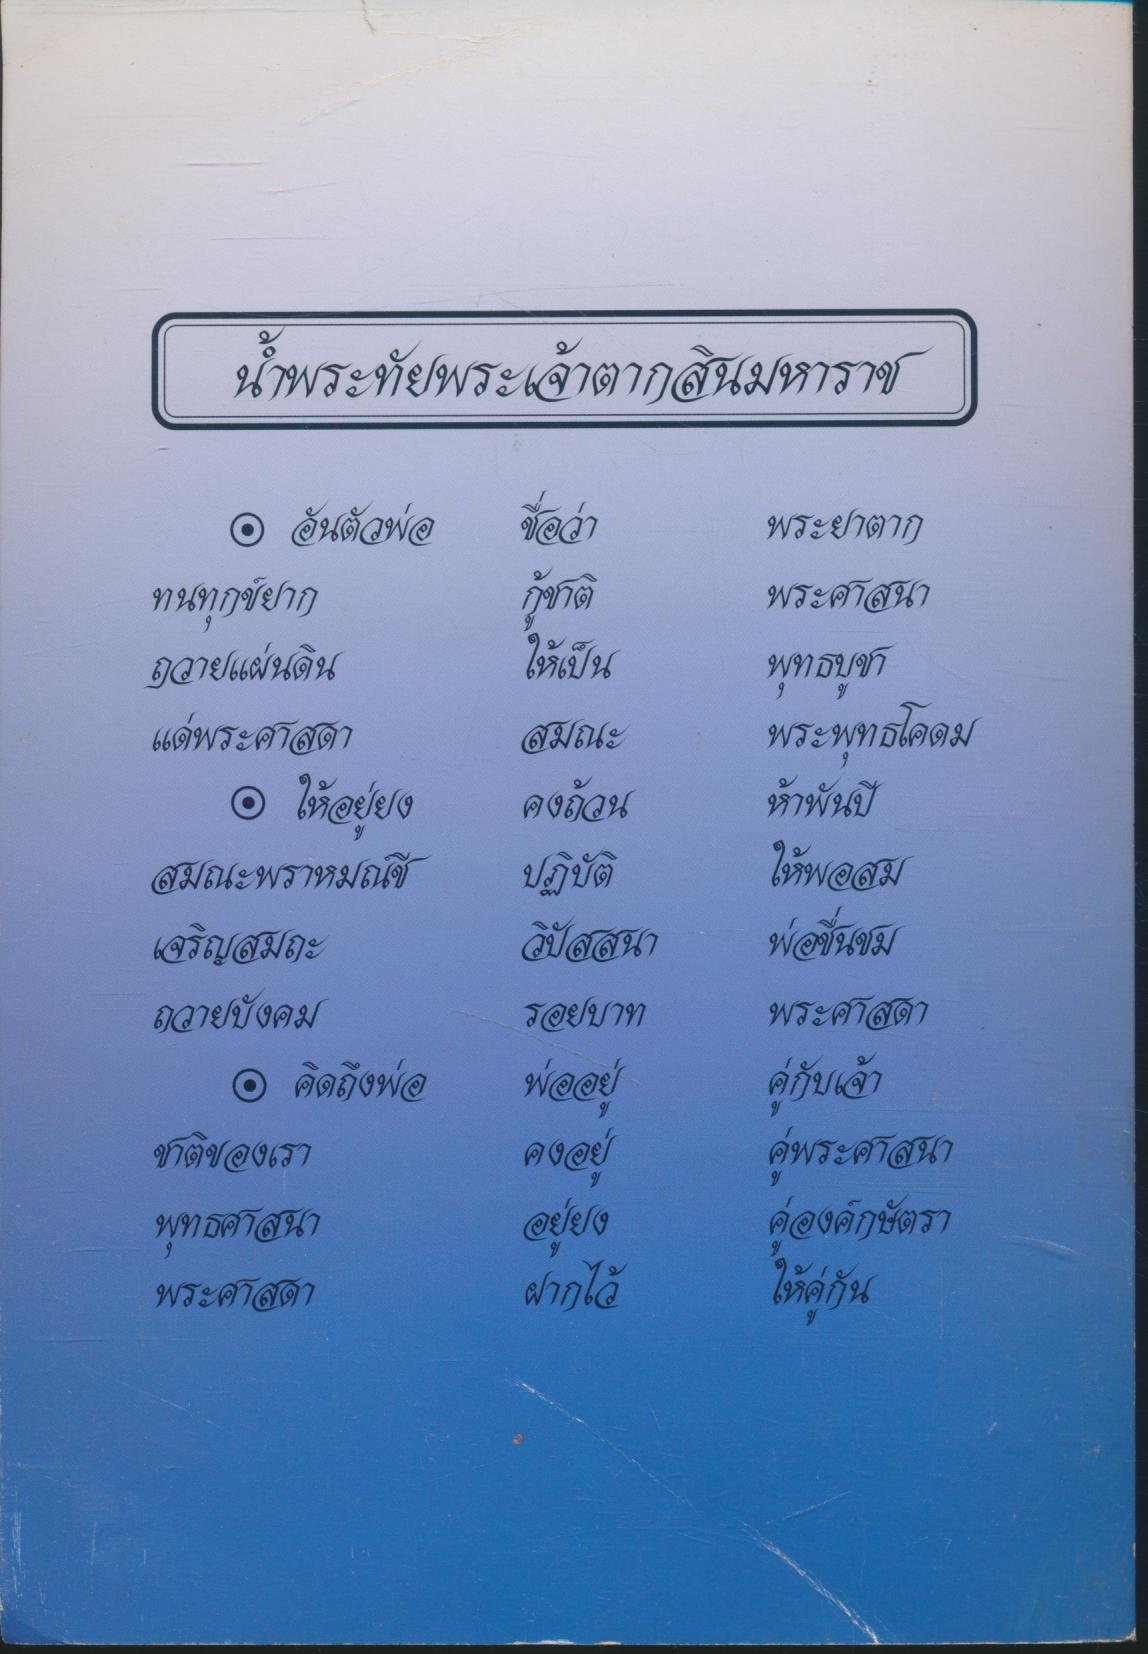 น้ำพระทัยพระเจ้าตากสินมหาราช
๏ อันตัวพ่อ ชื่อว่า พระยาตาก
ทนทุกข์ยาก กู้ชาติ พระศาสนา
ถวายแผ่นดิน ให้เป็น พุทธบูชา
แด่พระศาสดา สมณะ พระพุทธโคดม
๏ ให้อยู่ยง คงถ้วน ห้าพันปี
สมณะพราหมณ์ชี ปฏิบัติ ให้พอสม
เจริญสมถะ วิปัสสนา พ่อชื่นชม
ถวายบังคม รอยบาท พระศาสดา
๏ คิดถึงพ่อ พ่ออยู่ คู่กับเจ้า
ชาติของเรา คงอยู่ คู่พระศาสนา
พุทธศาสนา อยู่ยง คู่องค์กษัตรา
พระศาสดา ฝากไว้ ให้คู่กัน